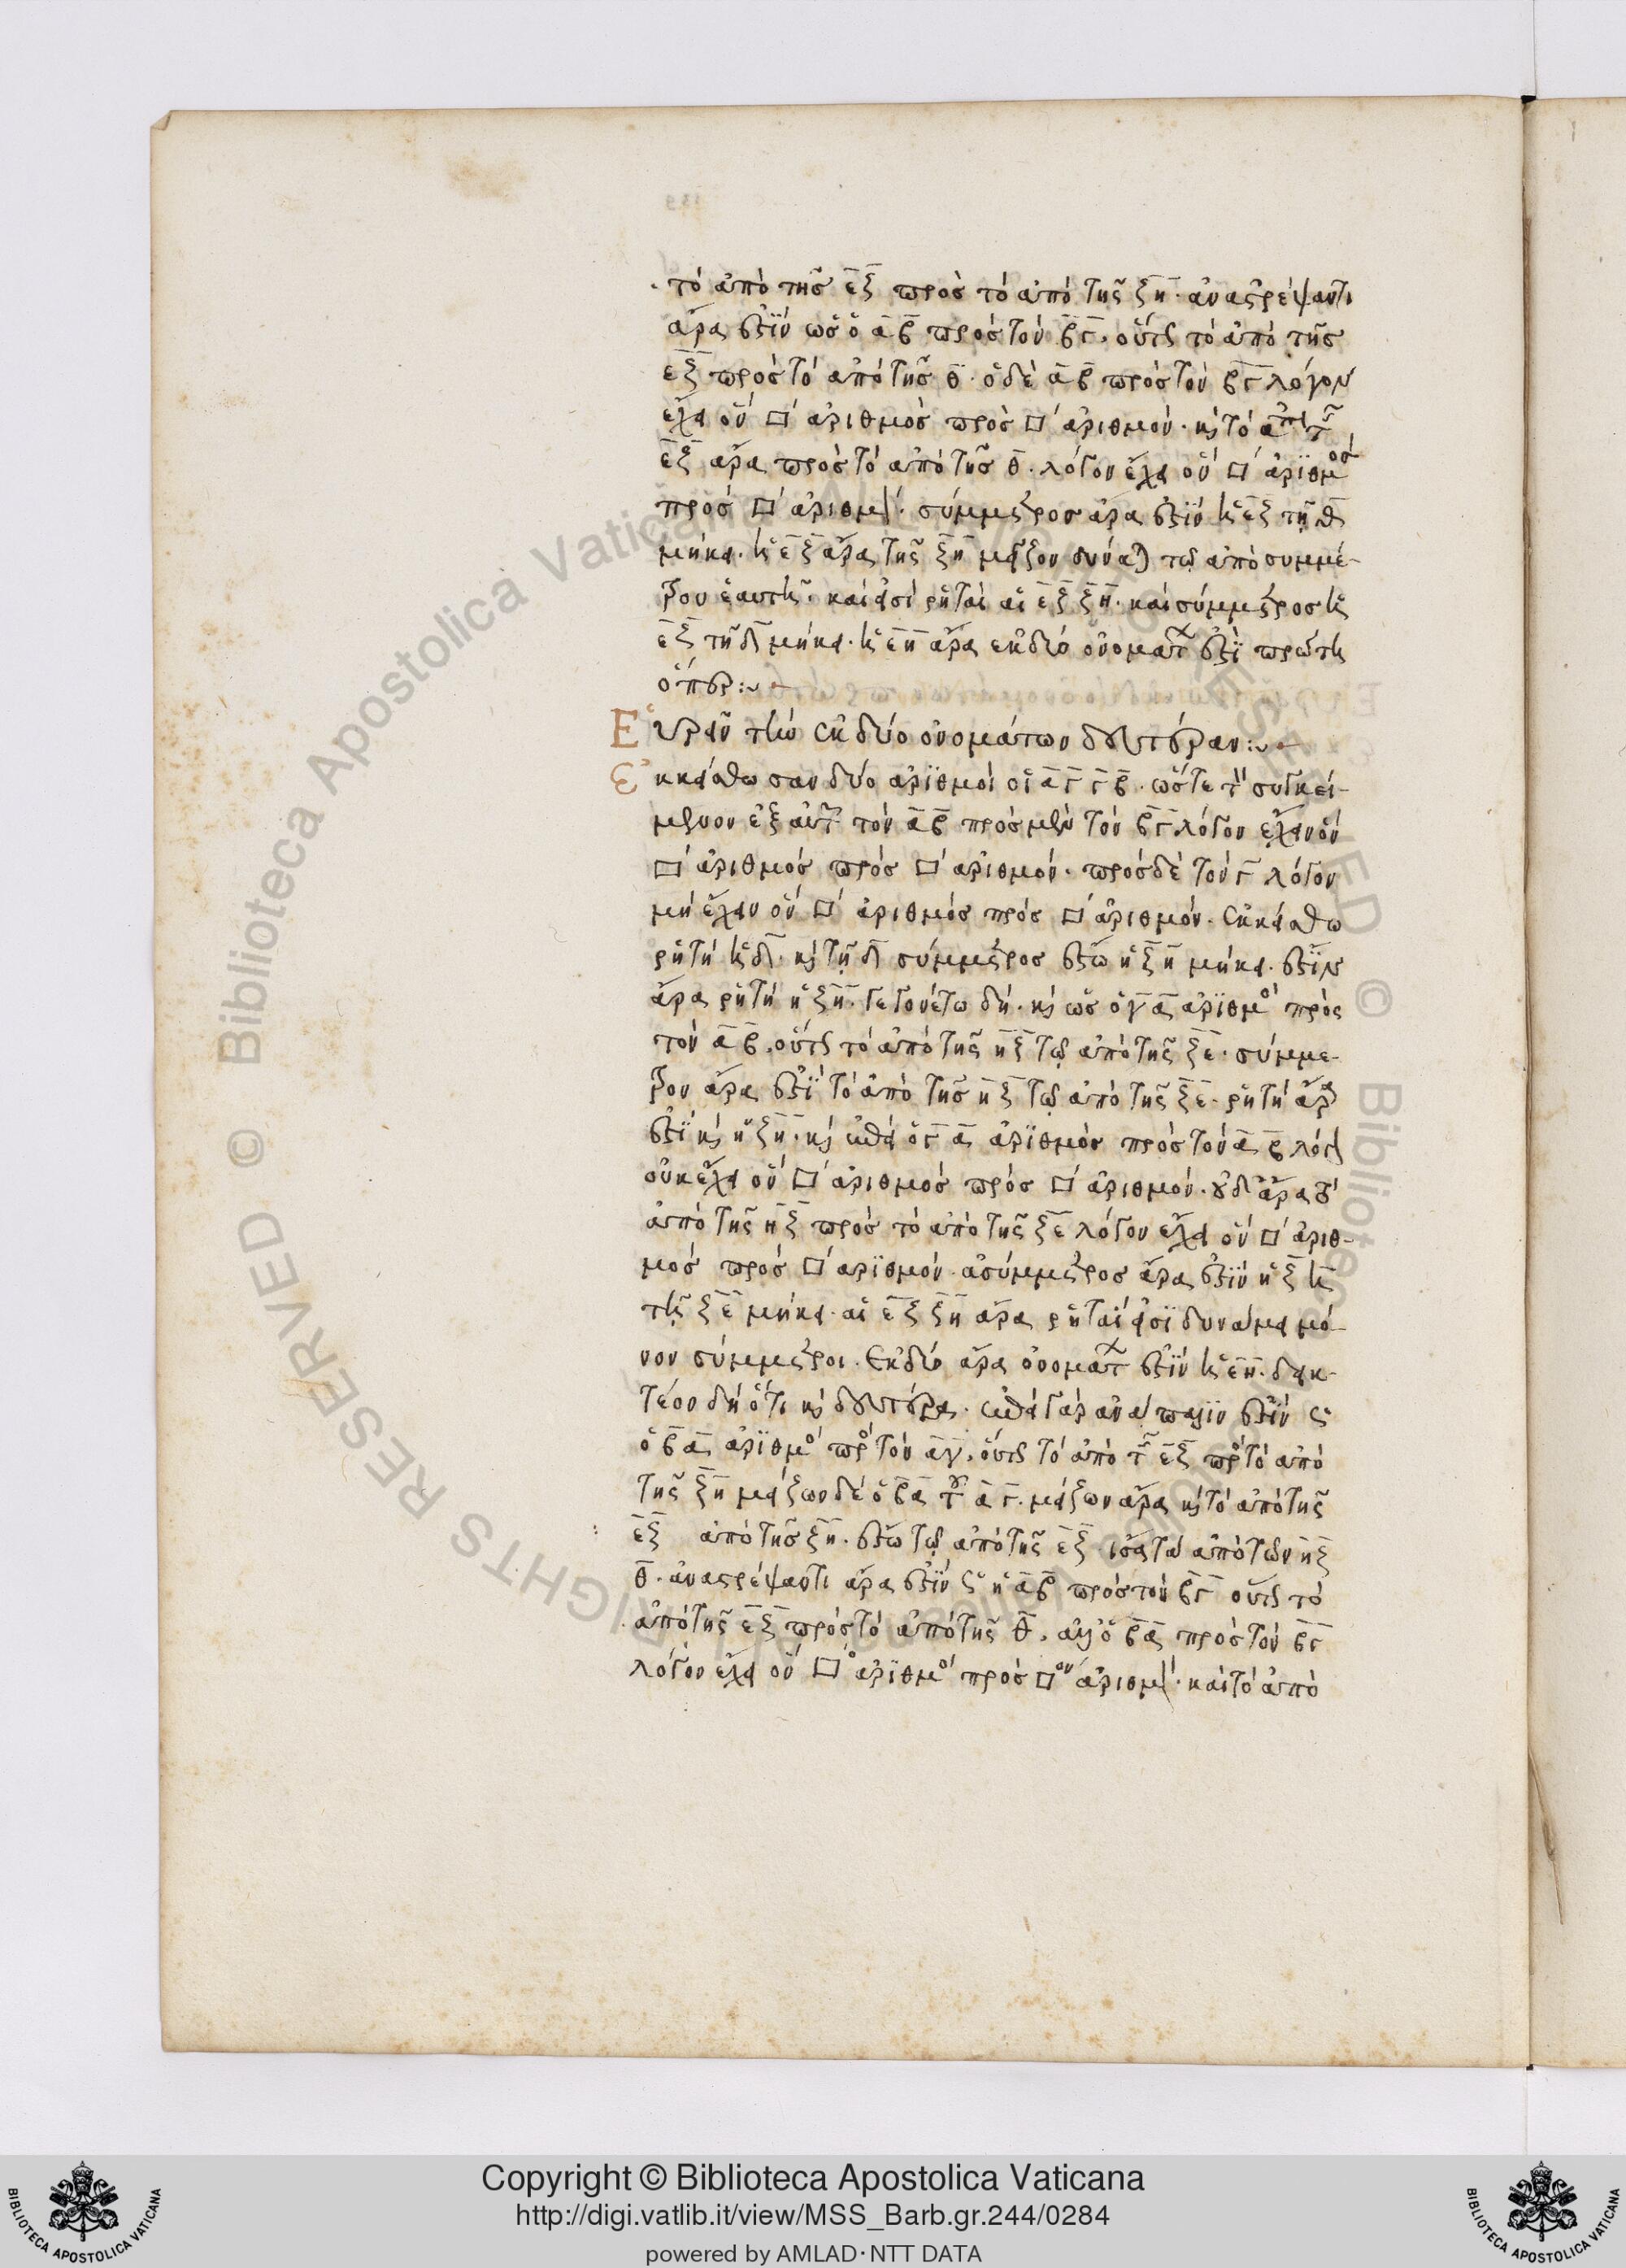 τὸ ἀπὸ τῆς εξ πρὸς τὸ ἀπὸ τῆς ξη· ἀναστρέψαντι
ἄρα ἐστὶν ὡς ὁ αβ πρὸς τὸν βγ, οὕτως τὸ ἀπὸ τῆς
εξ πρὸς τὸ ἀπὸ τῆς θ· ὁ δὲ αβ πρὸς τὸν βγ λόγον
ἔχει ὃν □ ἀριθμὸς πρὸς □ ἀριθμόν· καὶ τὸ ἀπὸ τῆς
εξ ἄρα πρὸς τὸ ἀπὸ τῆς θ· λόγον ἔχει ὃν □ ἀριθμὸς
πρὸς □ ἀριθμόν· σύμμετρος ἄρα ἐστὶν ἡ εξ τῇ θ
μήκει· ἡ εξ ἄρα τῆς ξη μεῖζον δύναται τῷ ἀπὸ συμμέ-
τρου ἑαυτῇ· καί εἰσι ῥηταὶ αἱ εξ ξη· καὶ σύμμετρος ἡ
εξ τῇ δ μήκει· ἡ εη ἄρα ἐκ δύο ὀνομάτων ἐστὶ πρώτη
ὅπερ:~
Εὑρεῖν τὴν ἐκ δύο ὀνομάτων δευτέραν:~
Ἐκκείσθωσαν δύο ἀριθμοὶ οἱ αγ γβ· ὥστε τὸν συγκεί-
μενον ἐξ αὐτῶν τὸν αβ πρὸς μὲν τὸν βγ λόγον ἔχειν ὃν
□ ἀριθμὸς πρὸς □ ἀριθμόν· πρὸς δὲ τὸν γ λόγον
μὴ ἔχειν ὃν □ ἀριθμὸς πρὸς □ ἀριθμόν· ἐκκείσθω
ῥητὴ ἡ δ· καὶ τῇ δ σύμμετρος ἔστω ἡ ξη μήκει· ἐστὶν
ἄρα ῥητὴ ἡ ξη· γεγονέτω δὴ· καὶ ὡς ὁ γα ἀριθμὸς πρὸς
τὸν αβ, οὕτως τὸ ἀπὸ τῆς ηξ τῷ ἀπὸ τῆς ξε· σύμμε-
τρον ἄρα ἐστὶ τὸ ἀπὸ τῆς ηξ τῷ ἀπὸ τῆς ξε· ῥητὴ ἄρα
ἐστὶ καὶ ἡ ξη· καὶ ἐπεὶ ὁ γα ἀριθμὸς πρὸς τὸν αβ λόγον
οὐκ ἔχει ὃν □ ἀριθμὸς πρὸς □ ἀριθμόν· οὐδ' ἄρα τὸ
ἀπὸ τῆς ηξ πρὸς τὸ ἀπὸ τῆς ξε λόγον ἔχει ὃν □ ἀριθ-
μὸς πρὸς □ ἀριθμόν· ἀσύμμετρος ἄρα ἐστὶν ἡ ξη
τῇ ξε μήκει· αἱ εξ ξη ἄρα ῥηταί εἰσι δυνάμει μό-
νον σύμμετροι· ἐκ δύο ἄρα ὀνομάτων ἐστὶν ἡ εη· δεικ-
τέον δὴ ὅτι καὶ δευτέρα· ἐπεὶ γὰρ ἀνάπαλιν ἐστὶν ὡς
ὁ βα ἀριθμὸς πρὸς τὸν αγ, οὕτως τὸ ἀπὸ τῆς εξ πρὸς τὸ ἀπὸ
τῆς ξη μείζων δὲ ὁ βα τοῦ αγ· μεῖζων ἄρα καὶ τὸ ἀπὸ τῆς
εξ ἀπὸ τῆς ξη· ἔστω τῷ ἀπὸ τῆς εξ ἴσα τὰ ἀπὸ τῶν ηξ
θ· ἀναστρέψαντι ἄρα ἐστὶν ὡς ἡ αβ πρὸς τὸν βγ οὕτως τὸ
ἀπὸ τῆς εξ πρὸς τὸ ἀπὸ τῆς θ, ἀλλ' ὁ βα πρὸς τὸν βγ
λόγον ἔχει ὃν □ος ἀριθμὸς πρὸς □ον ἀριθμόν· καὶ τὸ ἀπὸ
Copyright © Biblioteca Apostolica Vaticana
http://digi.vatlib.it/view/MSS_Barb.gr.244/0284
powered by AMLAD·NTT DATA